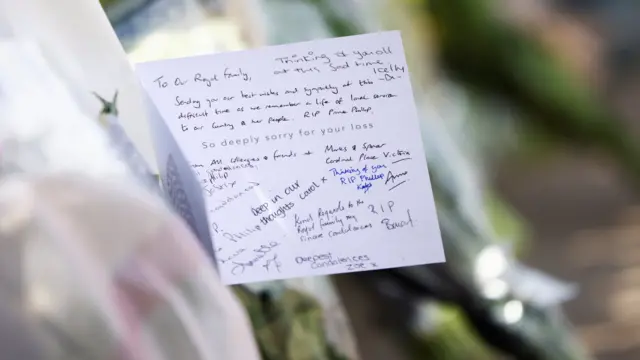 Thinking of you all
To Our Royal Family, at this sad time,
Kelly
Sending you our best wishes and sympathy at this
difficult time as we remember a life of service
to our Country & her People. RIP Prince Philip.
So deeply sorry for your loss
All Colleagues & friends Marks & Spencer
Cardinal Place Victoria
Thinking of you
RIP Phillip
Anna
Deep in our
thoughts Carol x
Philip
Kind Regards to the R.I.P
Royal family my
sincere condolences
Deepest
Condolences
Zoe x